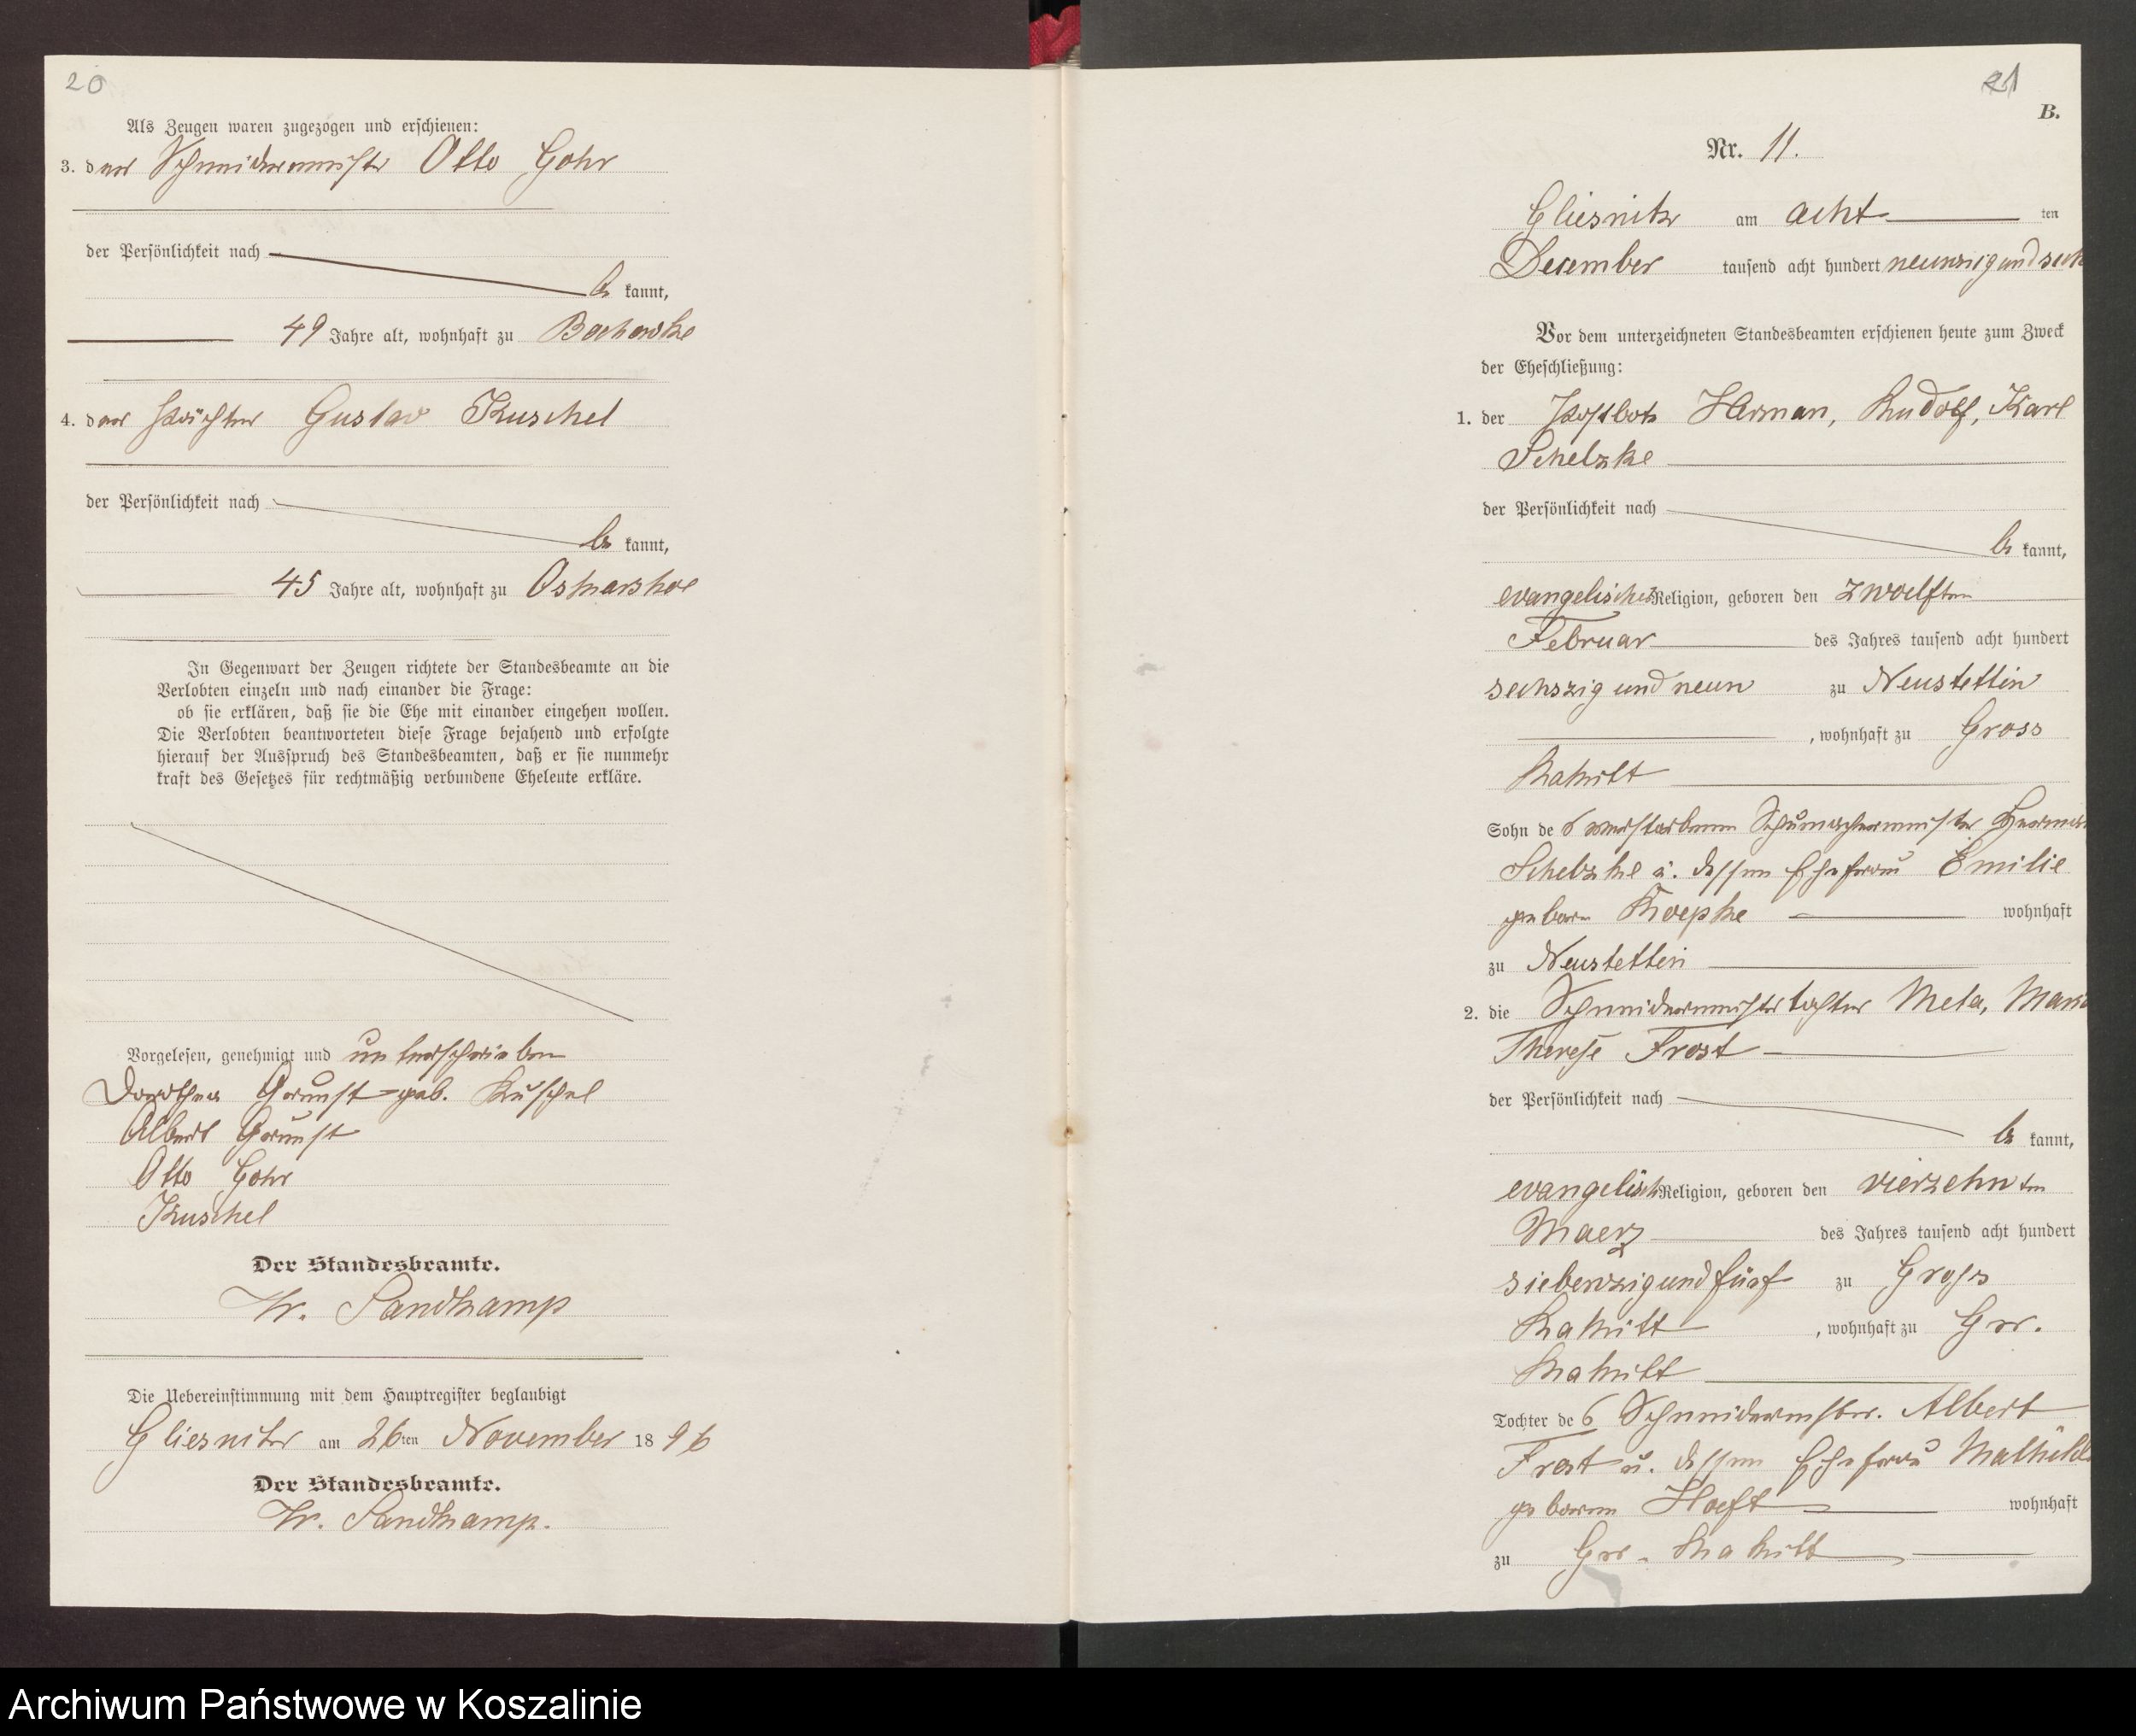 20
Als Zeugen waren zugezogen und erschienen:
3. der Schneidermeister Otto Gohr
der Persönlichkeit nach
be kannt,
49 Jahre alt, wohnhaft zu Bochowke
4. der Pächter Gustav Kuschel
der Persönlichkeit nach
be kannt,
45 Jahre alt, wohnhaft zu
In Gegenwart der Zeugen richtete der Standesbeamte an die
Verlobten einzeln und nach einander die Frage:
ob sie erklären, daß sie die Ehe mit einander eingehen wollen.
Die Verlobten beantworteten diese Frage bejahend und erfolgte
hierauf der Ausspruch des Standesbeamten, daß er sie nunmehr
kraft des Gesetzes für rechtmäßig verbundene Eheleute erkläre.
Vorgelesen, genehmigt und unterschrieben
Dorothea Grunst geb. Kuschel
Albert Grunst
Otto Gohr
Kuschel
Der Standesbeamte.
Sandkamp
Die Uebereinstimmung mit dem Hauptregister beglaubigt
Gliesnitz am 26ten November 1896
Der Standesbeamte.
Sandkamp.
21
B.
Nr. 11.
Gliesnitz am acht ten
December tausend acht hundert neunzig und sech
Vor dem unterzeichneten Standesbeamten erschienen heute zum Zweck
der Eheschließung:
1. der Postbote Herman, Rudolf, Karl
Schelzke
der Persönlichkeit nach
be kannt,
evangelischer Religion, geboren den zwoelften
Februar des Jahres tausend acht hundert
sechszig und neun zu Neustettin
, wohnhaft zu Gross
Rakitt
Sohn des verstorbenen Schumachermeister Herman
Schelzke u. dessen Ehefrau Emilie
geborn Koepke wohnhaft
zu Neustettin
2. die Schneidermeistertochter Meta, Maria
Therese Frost
der Persönlichkeit nach
be kannt,
evangelisch Religion, geboren den vierzehnten
Maerz des Jahres tausend acht hundert
siebenzig und fünf zu Gross
Rakitt , wohnhaft zu Gr.
Rakitt
Tochter des Schneidermstr. Albert
Frost u. dessen Ehefrau Mathilde
geboren Hoeft wohnhaft
zu Gr. Rakitt
Archiwum Państwowe w Koszalinie